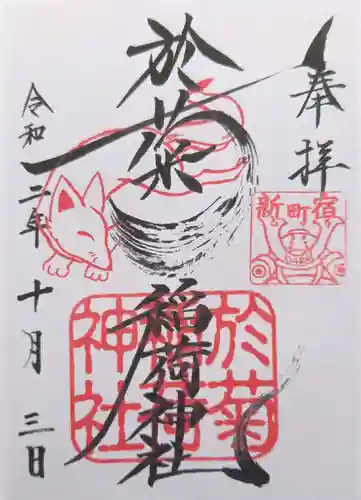 奉拝
於菊稲荷神社
令和二年十月三日
新町宿
於菊稲荷神社